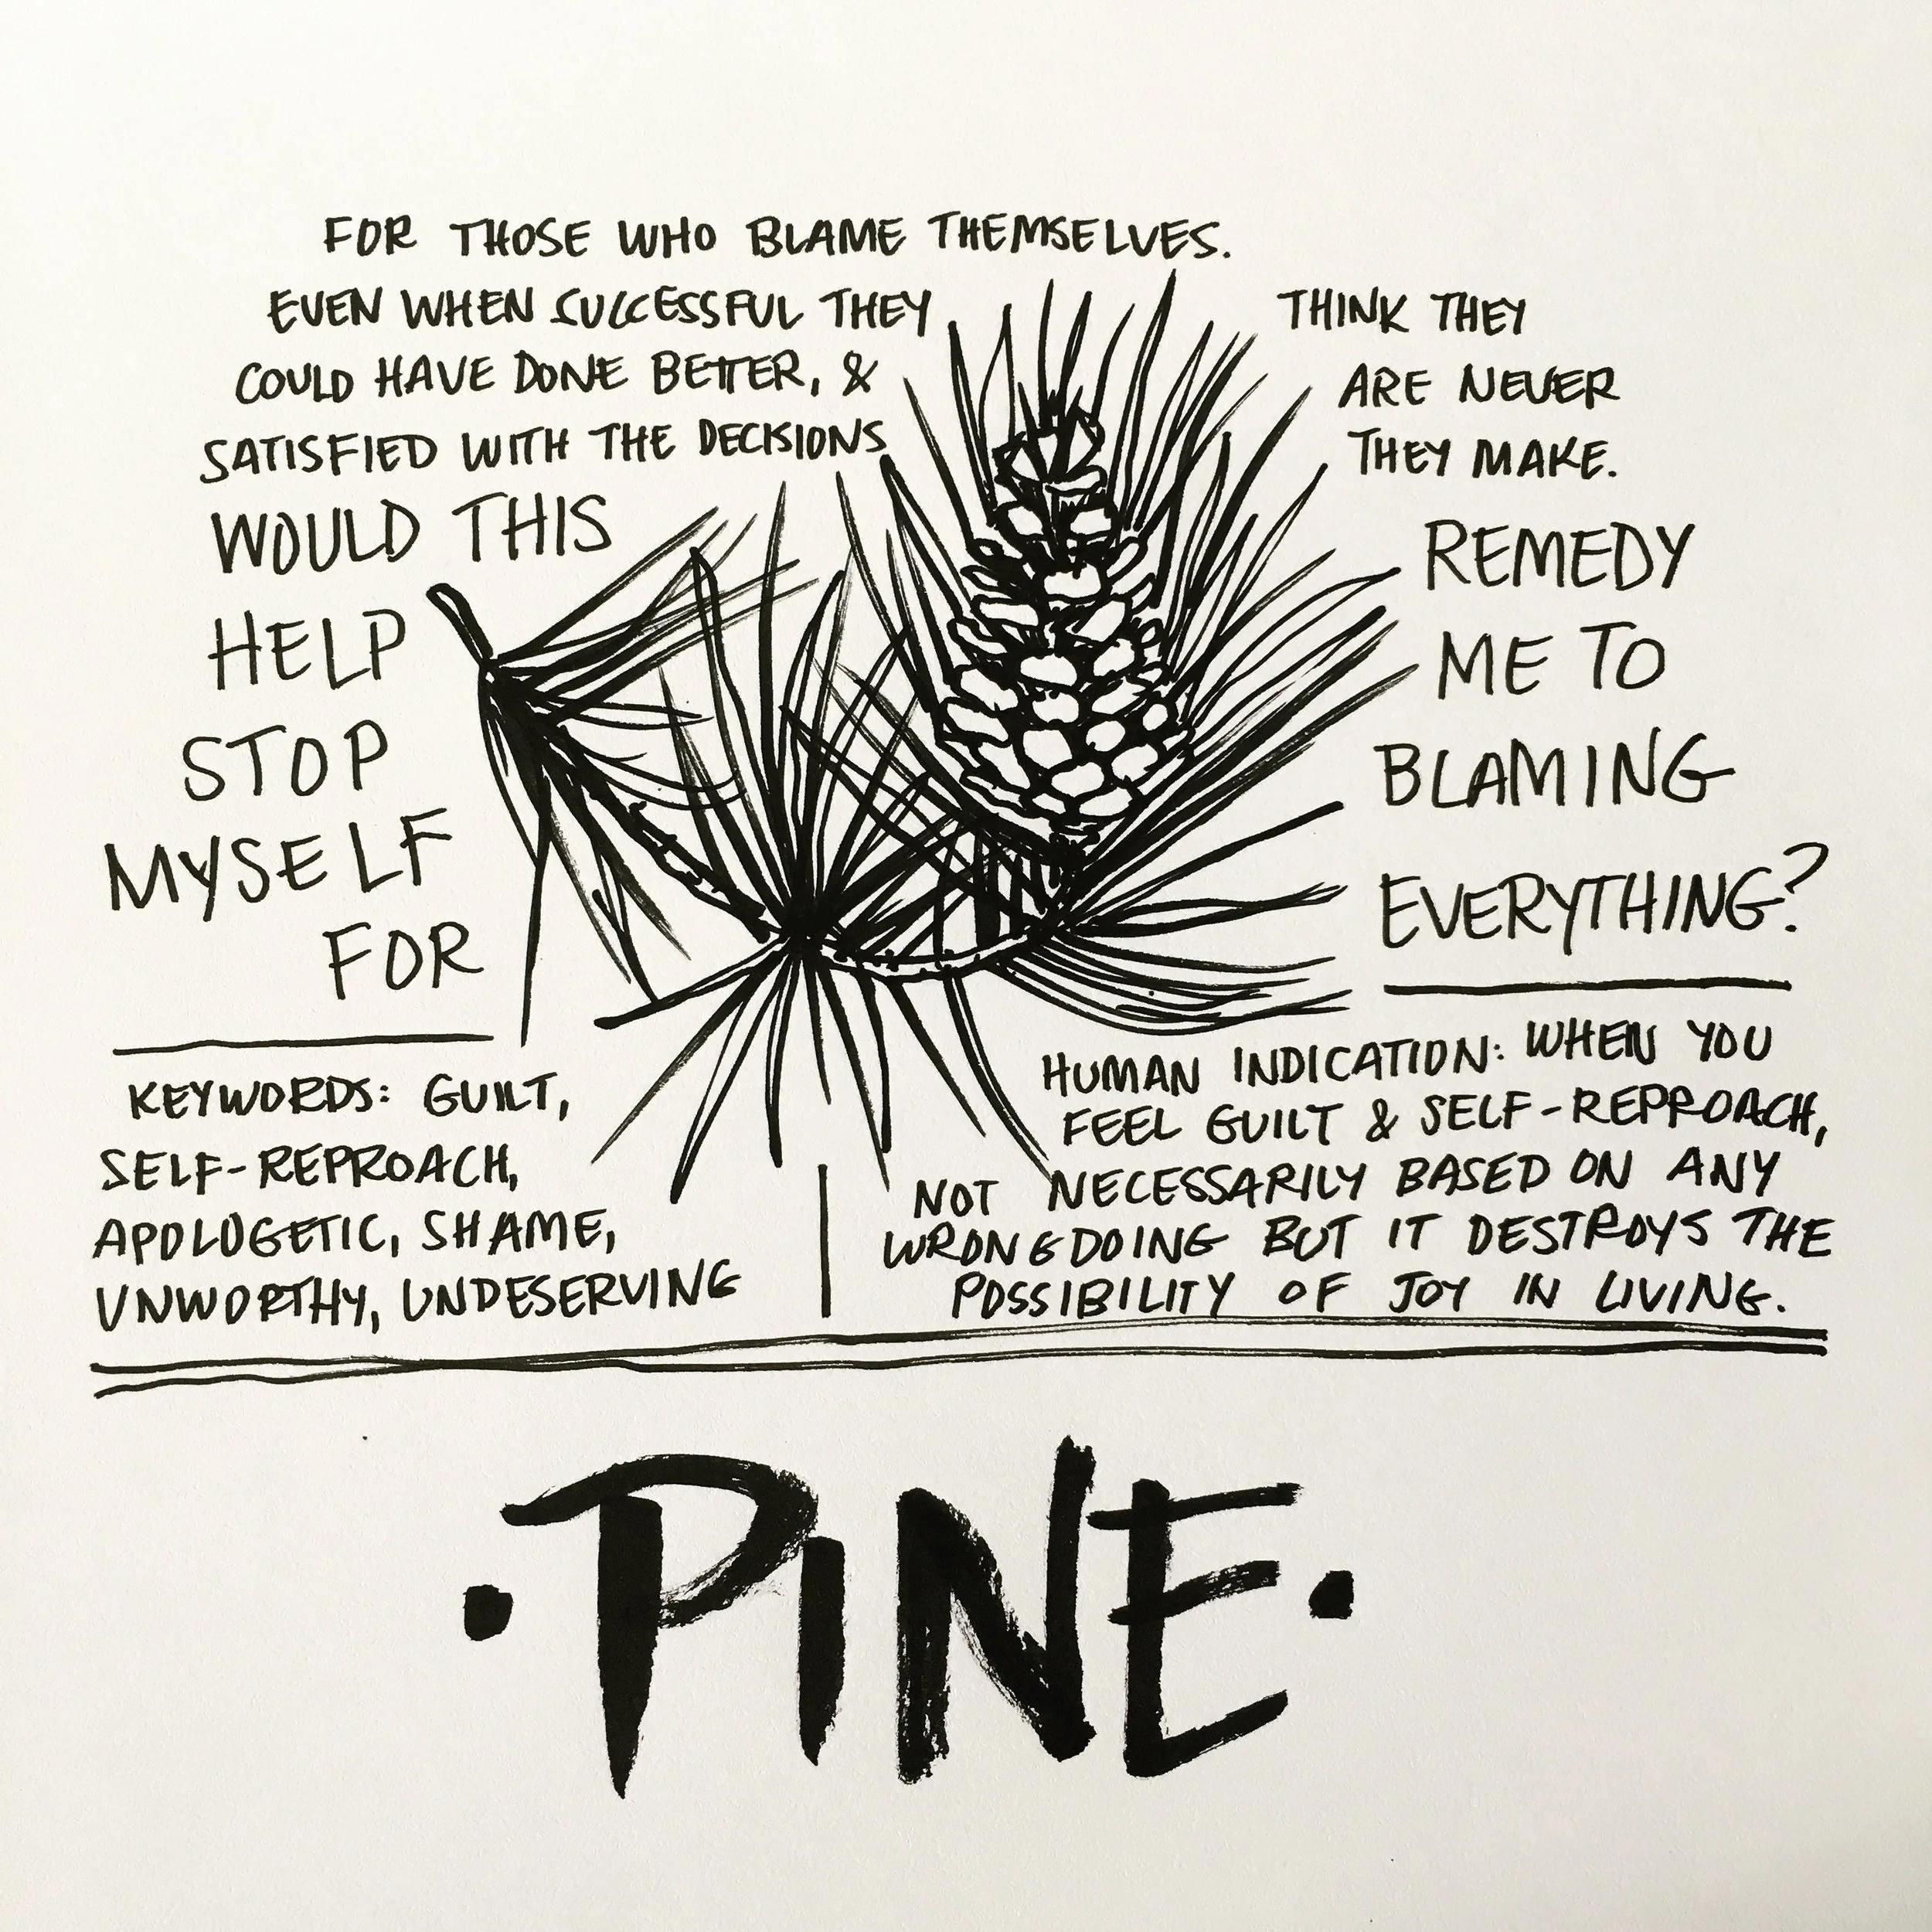 FOR THOSE WHO BLAME THEMSELVES.
EVEN WHEN SUCCESSFUL THEY THINK THEY
COULD HAVE DONE BETTER, & ARE NEVER
SATISFIED WITH THE DECISIONS THEY MAKE.
WOULD THIS REMEDY
HELP ME TO
STOP BLAMING
MYSELF
FOR EVERYTHING?
KEYWORDS: GUILT,
SELF-REPROACH,
APOLOGETIC, SHAME,
UNWORTHY, UNDESERVING
HUMAN INDICATION: WHEN YOU
FEEL GUILT & SELF-REPROACH,
NOT NECESSARILY BASED ON ANY
WRONGDOING BUT IT DESTROYS THE
POSSIBILITY OF JOY IN LIVING.
• PINE •